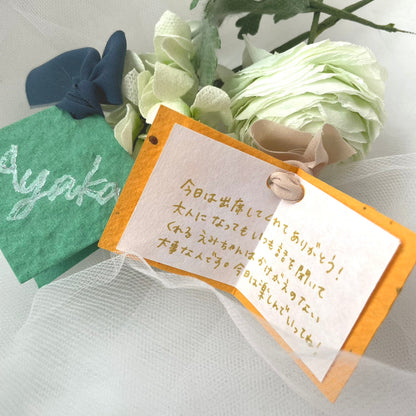 Ayaka
今日は出席してくれてありがとう!
大人になってもいつも話を聞いて
くれる えみちゃんは かけがえのない
大事な人です。今日は楽しんでいってね!